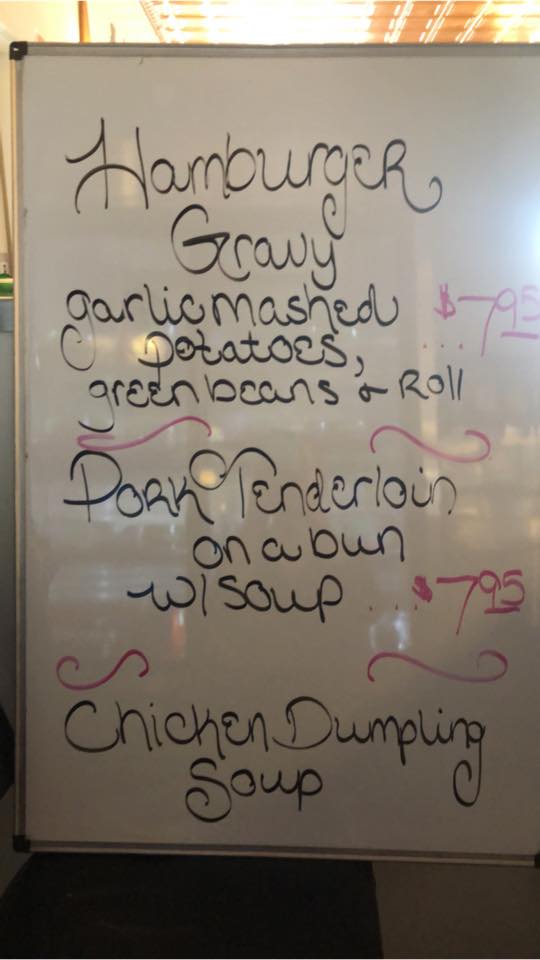 Hamburger
Gravy
garlic mashed $7.95
potatoes, ...
green beans & Roll
Pork Tenderloin
on a bun
w/ soup .... $7.95
Chicken Dumpling
Soup